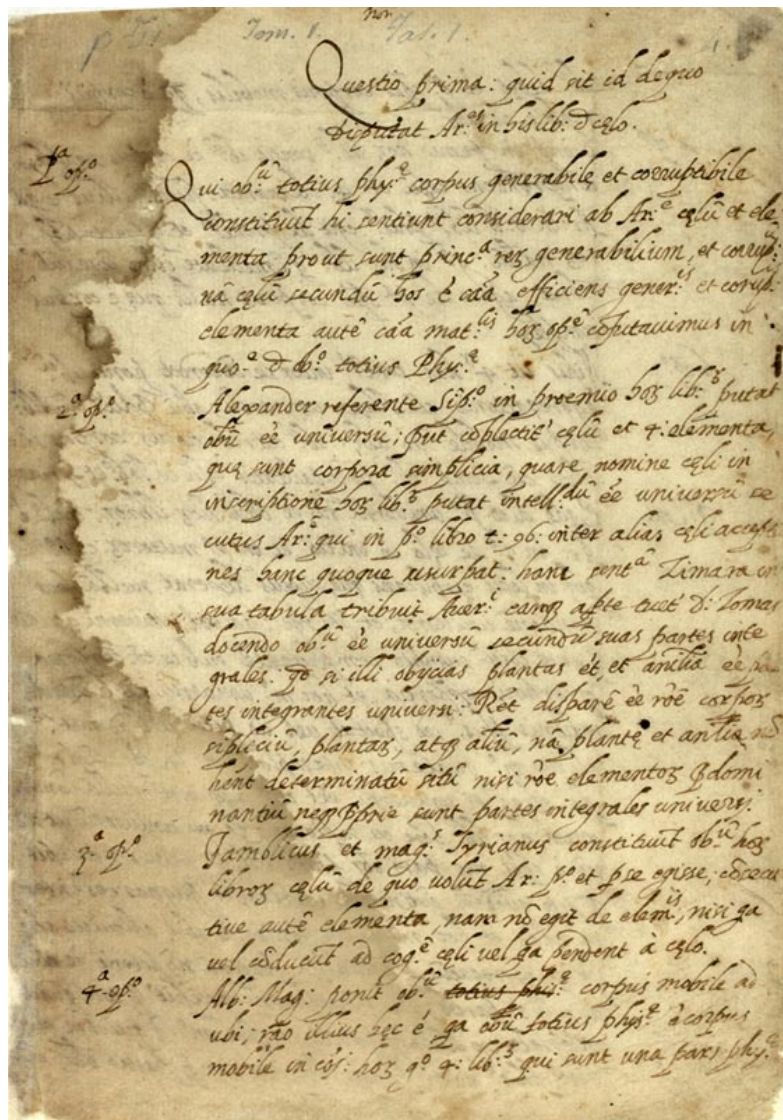 non
p 51 Tom. 1. Tat. 1. 1
Questio prima: quid sit id de quo
disputat Ar:es in his lib: d cęlo.
1a op:o
Qui ob:ū totius phy:ę corpus generabile et corruptibile
constituūt hi sentiunt considerari ab Ar:e cęlū et ele
menta prout sunt princ:a reꝝ generabilium, et corrup:
nā cęlū secundū hos ē cāa efficiens gener:is et corrup:
elementa autē cāa mat:lis hoꝝ op:ē cōfutavimus in
quo:e d ob:o totius Phy:ę
2a op:o
Alexander referente Sip:o in proemio hoꝝ lib:s putat
obū ēē universū; put cōplectit' cęlū et 4: elementa,
quę sunt corpora simplicia, quare, nomine cęli in
inscriptione hoꝝ lib:s putat intell:dū ēē universū se
cutus Ar:ē qui in p:o libro t: 96: inter alias cęli accep
nes hanc quoque usurpat: hanc sent:ā Zimara in
sua tabula tribuit Aver:i eamq apte tuet' d: Tomas
docendo ob:ū ēē universū secundū suas partes inte
grales. qd si illi obycias plantas ēt, et anīlia ēē par
tes integrantes universi: Rēt disparē ēē rōē corpoꝝ
siplicium, plantaꝝ, atqꝫ alīū, nā plantę et anīlia nō
hent determinatū sitū nisi rōē elementoꝝ pdomi
nantiū neqꝫ pprie sunt partes integrales universi.
3a op:o
Jamblicus et mag:s Syrianus constituūt ob:ū hoꝝ
libroꝝ cęlū de quo volūt Ar: p:o et p se egisse, cōsecu
tive autē elementa, nam nō egit de elem:is, nisi qa
vel cōducūt ad cog:ē cęli vel qa pendent à cęlo.
4a op:o
Alb: Mag: ponit ob:ū totius phy:ę corpus mobile ad
ubi; rāo illius hęc ē qa obū totius phys:ę ē corpus
mobile in cōi: hoꝝ q:o 4: lib:s qui sunt una pars phy:ę